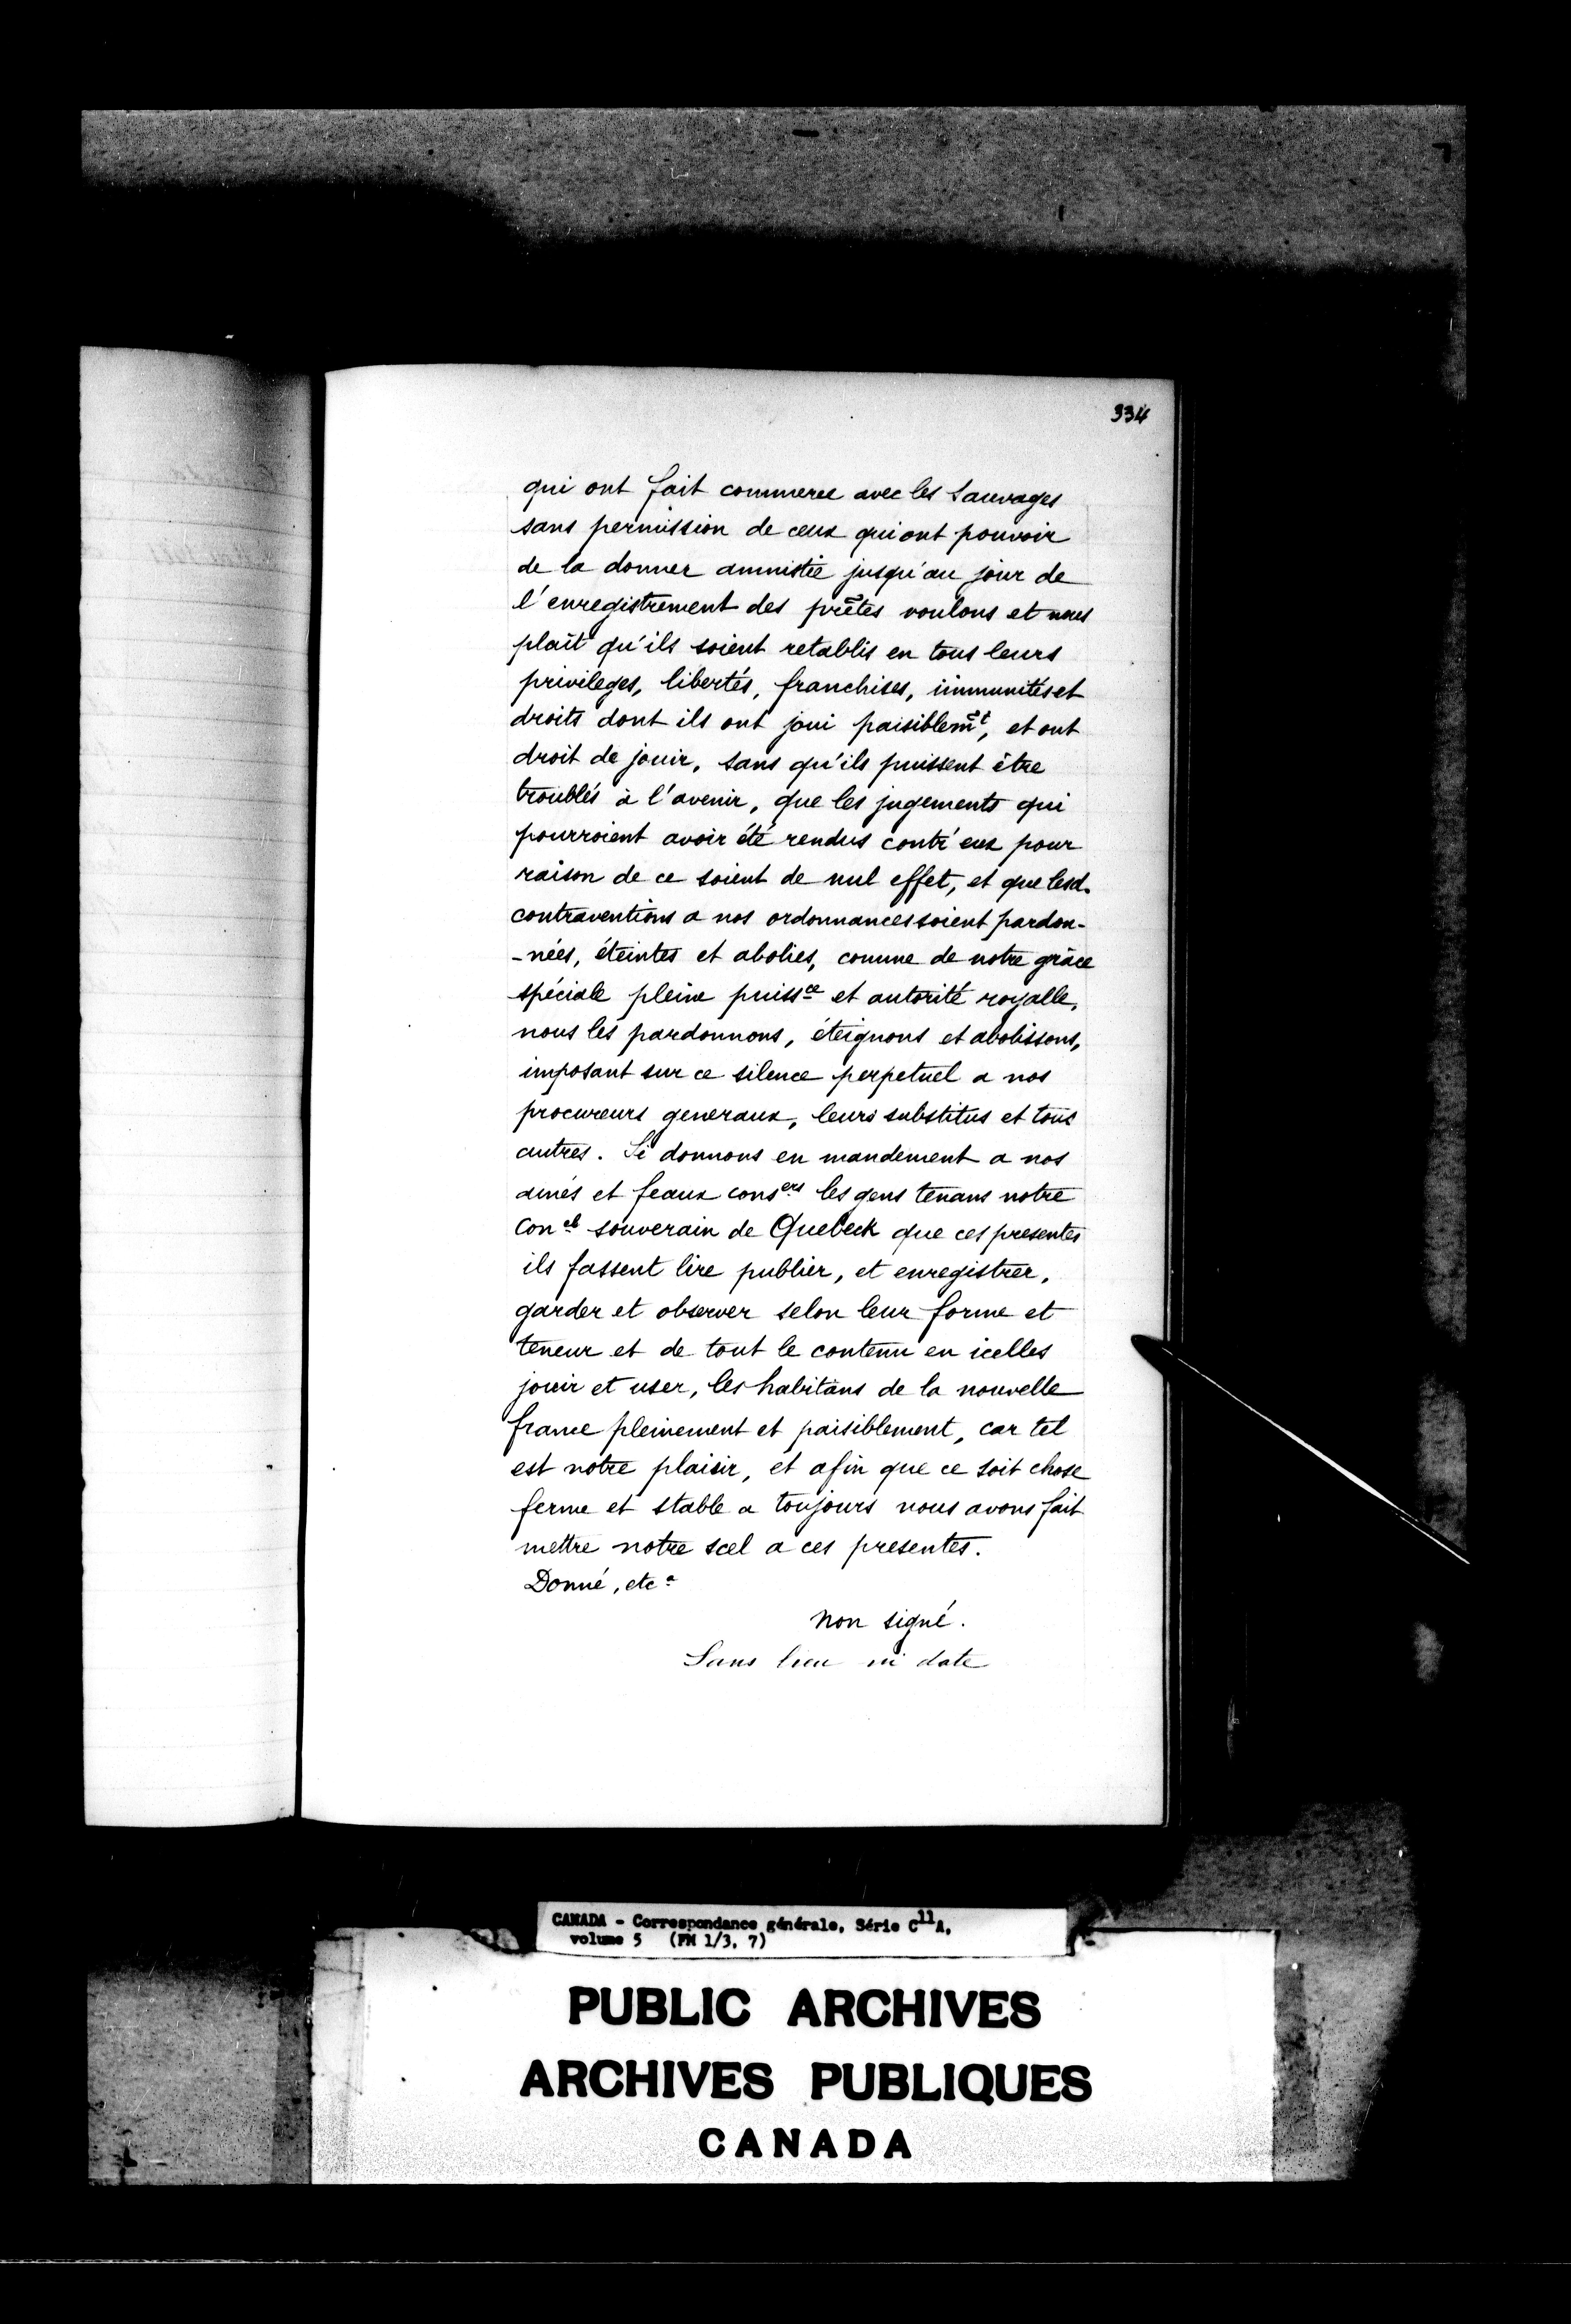 334
qui ont fait commerce avec les Sauvages
sans permission de ceux qui ont pouvoir
de la donner amnistie jusqu'au jour de
l'enregistrement des prêtes voulons et nous
plait qu'ils soient retablis en tous leurs
privileges, libertés, franchises, immunités et
droits dont ils ont joui paisiblemt, et ont
droit de jouir, sans qu'ils puissent être
troublés à l'avenir, que les jugements qui
pourroient avoir été rendus contr'eux pour
raison de ce soient de nul effet, et que lesd.
contraventions a nos ordonnances soient pardon-
-nées, éteintes et abolies, comme de notre grâce
spéciale pleine puissce et autorité royalle,
nous les pardonnons, éteignons et abolissons,
imposant sur ce silence perpetuel a nos
procureurs generaux, leurs substitus et tous
autres. Si donnons en mandement a nos
amés et feaux consers les gens tenans notre
conel souverain de Quebeck que ces presentes
ils fassent lire publier, et enregistrer,
garder et observer selon leur forme et
teneur et de tout le contenu en icelles
jouir et user, les habitans de la nouvelle
france pleinement et paisiblement, car tel
est notre plaisir, et afin que ce soit chose
ferme et stable a toujours nous avons fait
mettre notre scel a ces presentes.
Donné, etca
Non signé.
Sans lieu ni date
CANADA - Correspondance générale, Série C11A,
volume 5 (FM 1/3, 7)
PUBLIC ARCHIVES
ARCHIVES PUBLIQUES
CANADA